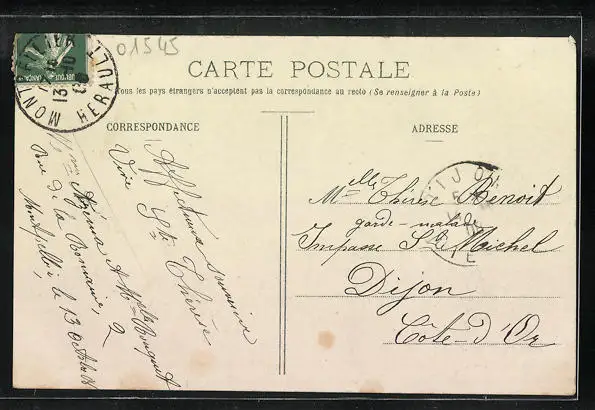 01545
MONTPELLIER
HERAULT
CARTE POSTALE
Tous les pays étrangers n'acceptent pas la correspondance au recto (Se renseigner à la Poste)
CORRESPONDANCE
ADRESSE
Affectueux souvenir
Vive Ste Thérèse
Mme Azéma & Melle Bouquet
Rue de la Romaine, 2
Montpellier le 13 octobre
DIJON
Melle Thérèse Benoit
garde-malade
Impasse St Michel
Dijon
Côte-d'Or